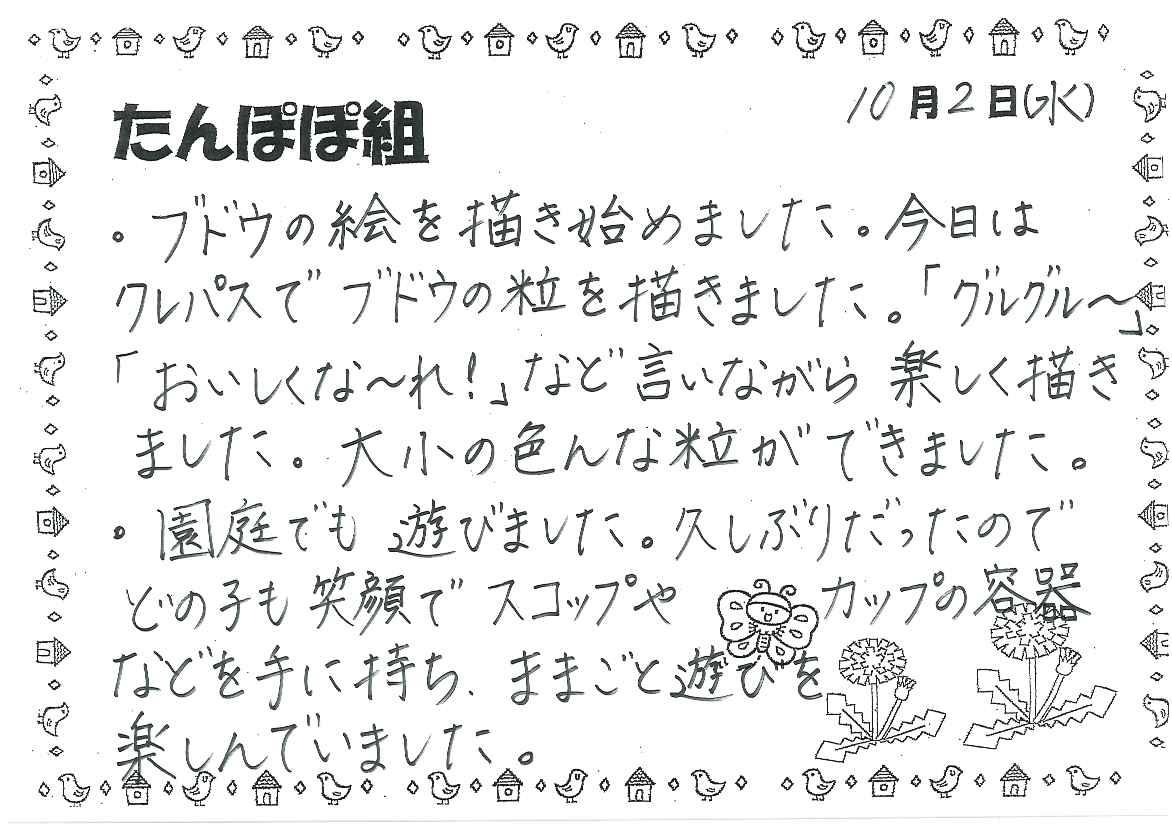 10月2日(水)
たんぽぽ組
・ブドウの絵を描き始めました。今日は
クレパスでブドウの粒を描きました。「グルグル〜」
「おいしくな〜れ!」など言いながら楽しく描き
ました。大小の色んな粒ができました。
・園庭でも遊びました。久しぶりだったので
どの子も笑顔でスコップやカップの容器
などを手に持ち、ままごと遊びを
楽しんでいました。